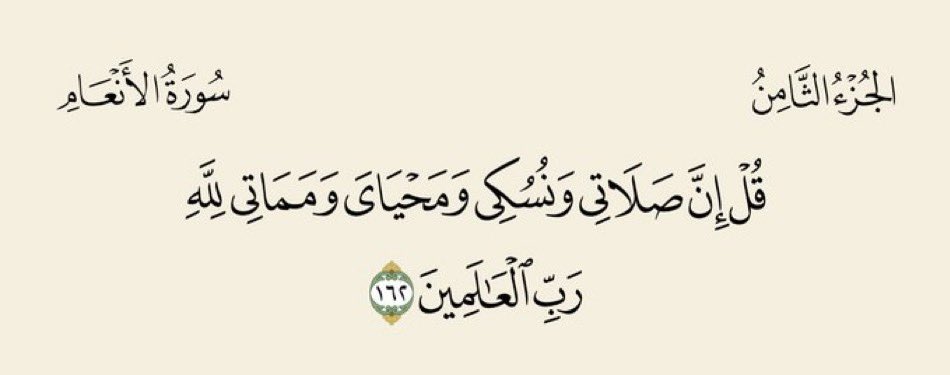 الجُزْءُ الثَّامِنُ
سُورَةُ الأَنْعَامِ
قُلْ إِنَّ صَلَاتِى وَنُسُكِى وَمَحْيَاىَ وَمَمَاتِى لِلَّهِ
رَبِّ ٱلْعَٰلَمِينَ ١٦٢